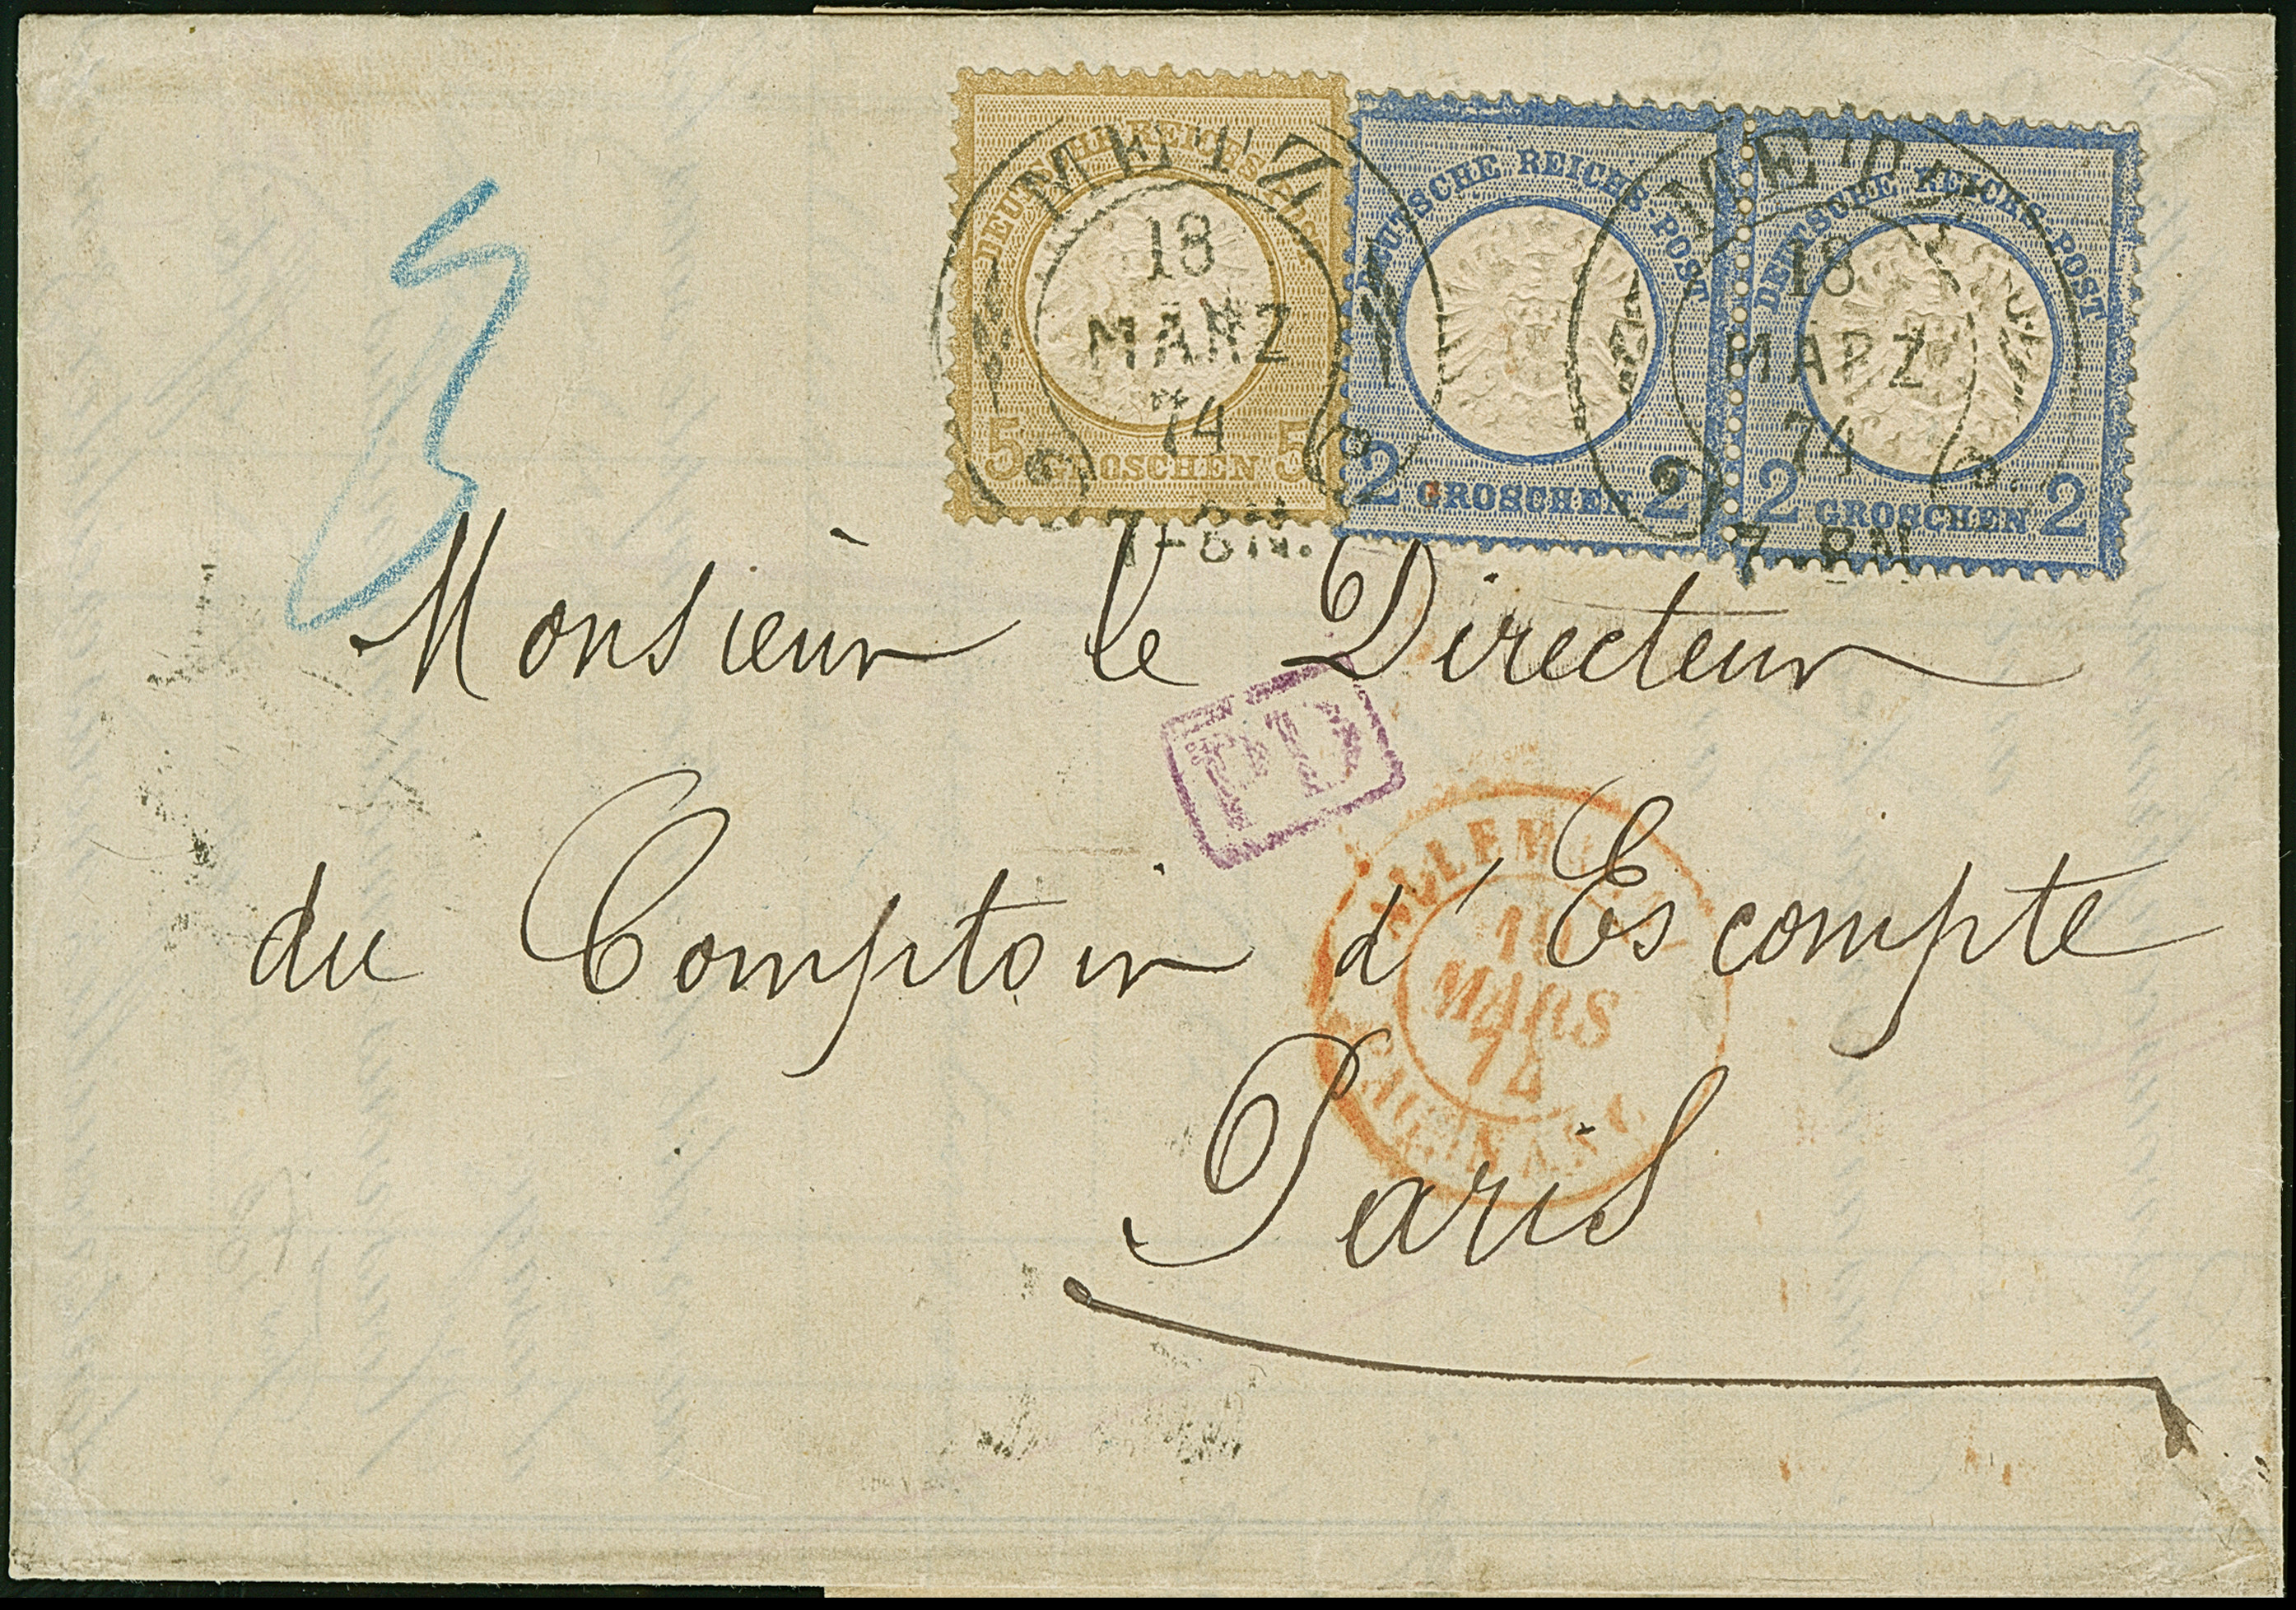 DEUTSCHE REICHS-POST
5 GROSCHEN 5
DEUTSCHE REICHS-POST
2 GROSCHEN 2
DEUTSCHE REICHS-POST
2 GROSCHEN 2
METZ
18
MÄRZ
74
7-8N.
METZ
18
MÄRZ
74
7-8N
Monsieur le Directeur
PD
du Comptoir d'Escompte
Paris
MARS
74